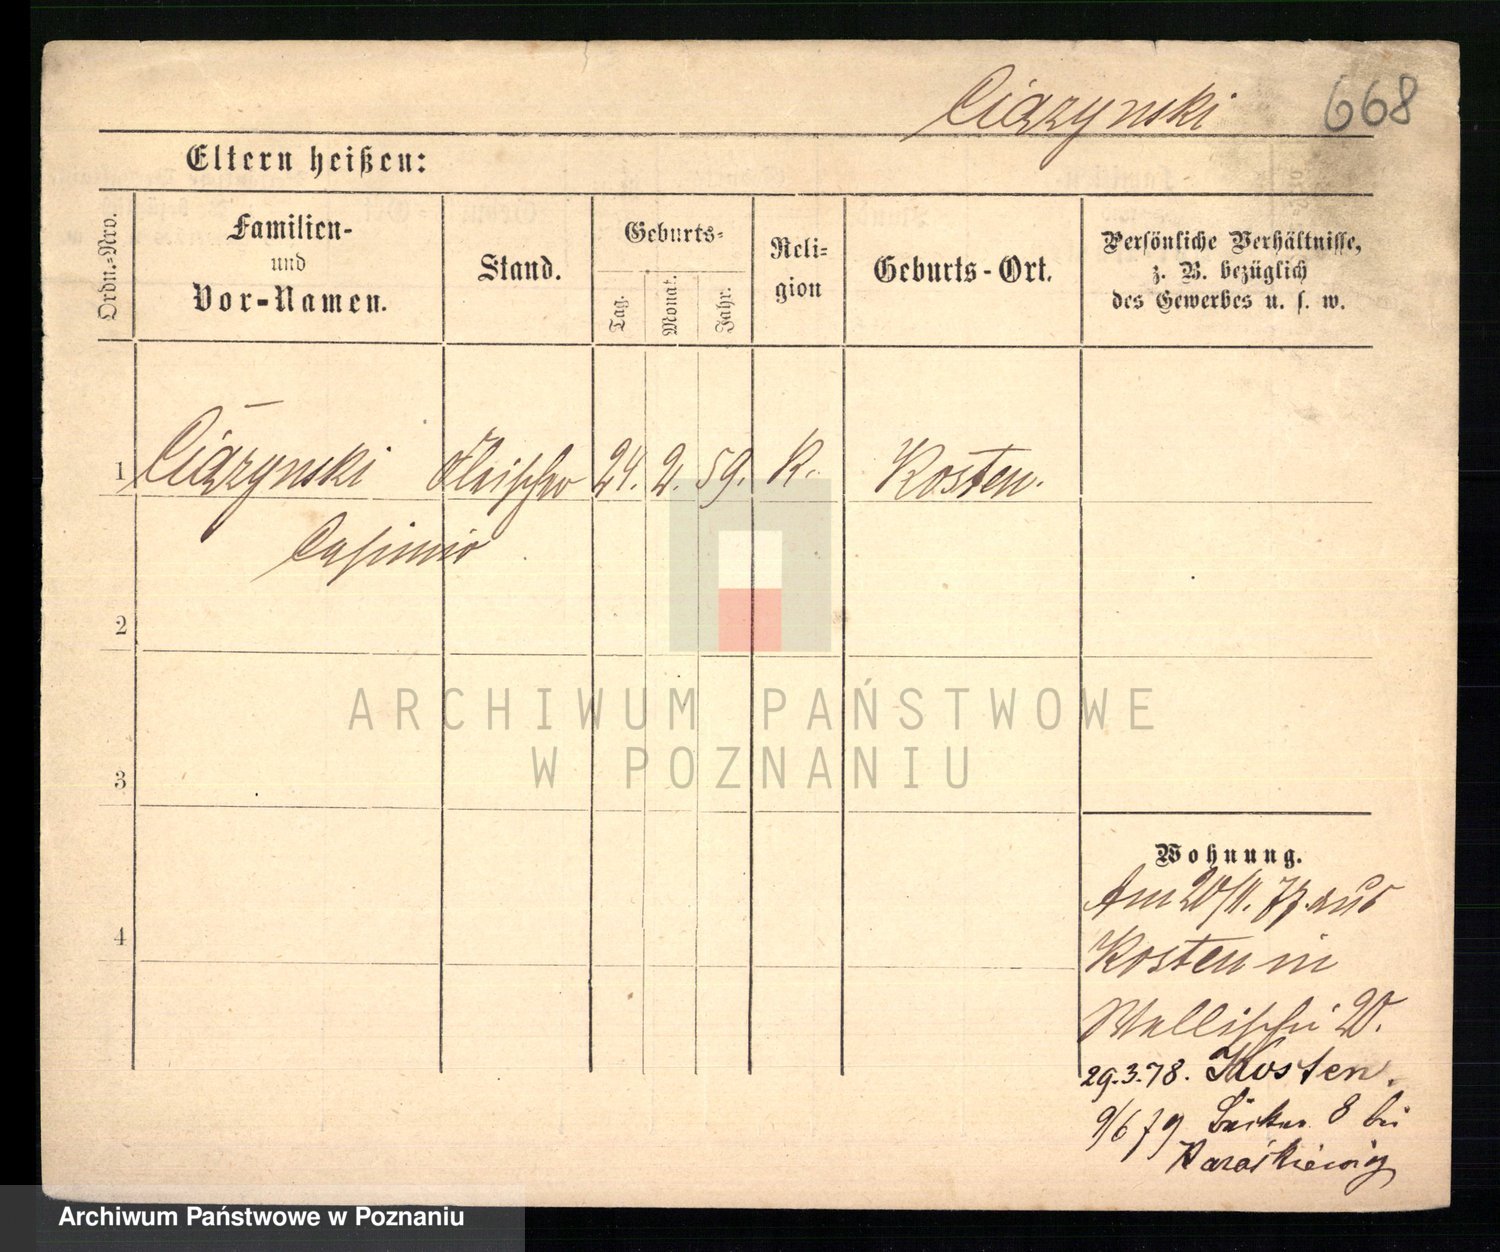 Ciązynski
668
Eltern heißen:
Ordn.-Nro.
Familien-
und
Vor-Namen.
Stand.
Geburts-
Tag.
Monat.
Jahr.
Reli-
gion
Geburts-Ort.
Persönliche Verhältnisse,
z. B. bezüglich
des Gewerbes u. s. w.
1 Ciązynski Fleischer 24. 2. 59. K. Kosten.
Casimir
2
3
4
Wohnung.
Am 20/11. 77. aus
Kosten in
Wallischei 20.
29.3.78. Kosten.
9/6 79 Bäcker 8 bei
ARCHIWUM PAŃSTWOWE
W POZNANIU
Archiwum Państwowe w Poznaniu